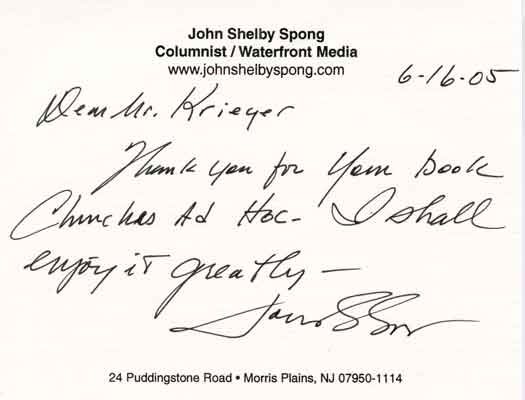 John Shelby Spong
Columnist / Waterfront Media
www.johnshelbyspong.com
6-16-05
Dear Mr. Krieger
Thank you for your book
Churches Ad Hoc- I shall
enjoy it greatly —
24 Puddingstone Road • Morris Plains, NJ 07950-1114